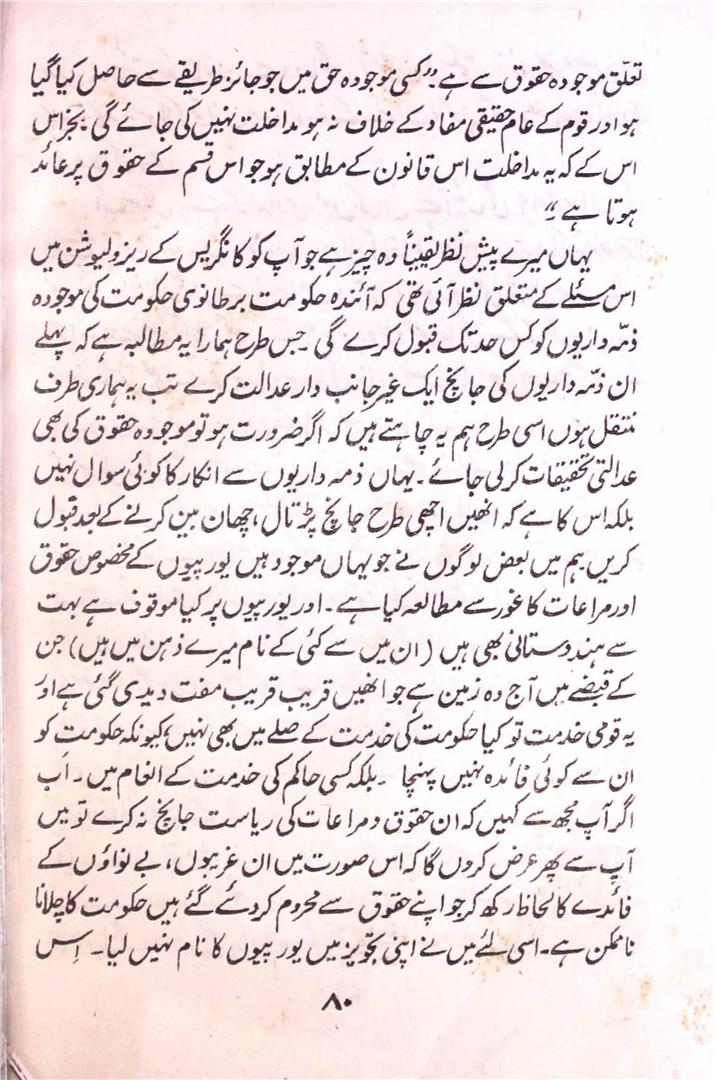 تعلّق موجودہ حقوق سے ہے۔ "کسی موجودہ حق میں جو جائز طریقے سے حاصل کیا گیا
ہو اور قوم کے عام حقیقی مفاد کے خلاف نہ ہو مداخلت نہیں کی جائے گی بجز اس
اس کے کہ یہ مداخلت اس قانون کے مطابق ہو جو اس قسم کے حقوق پر عائد
ہوتا ہے"
یہاں میرے پیش نظر یقیناً وہ چیز ہے جو آپ کو کانگریس کے ریزولیوشن میں
اس مسئلے کے متعلق نظر آئی تھی کہ آئندہ حکومت برطانوی حکومت کی موجودہ
ذمّہ داریوں کو کس حد تک قبول کرے گی۔ جس طرح ہمارا یہ مطالبہ ہے کہ پہلے
ان ذمّہ داریوں کی جانچ ایک غیر جانب دار عدالت کرے تب یہ ہماری طرف
منتقل ہوں اسی طرح ہم یہ چاہتے ہیں کہ اگر ضرورت ہو تو موجودہ حقوق کی بھی
عدالتی تحقیقات کرلی جائے۔ یہاں ذمہ داریوں سے انکار کا کوئی سوال نہیں
بلکہ اس کا ہے کہ انھیں اچھی طرح جانچ پڑتال، چھان بین کرنے کے بعد قبول
کریں ہم میں بعض لوگوں نے جو یہاں موجود ہیں یورپیوں کے مخصوص حقوق
اور مراعات کا غور سے مطالعہ کیا ہے۔ اور یورپیوں پر کیا موقوف ہے بہت
سے ہندوستانی بھی ہیں (ان میں سے کئی کے نام میرے ذہن میں ہیں) جن
کے قبضے میں آج وہ زمین ہے جو انھیں قریب قریب مفت دیدی گئی ہے اور
یہ قومی خدمت تو کیا حکومت کی خدمت کے صلے میں بھی نہیں، کیونکہ حکومت کو
ان سے کوئی فائدہ نہیں پہنچا۔ بلکہ کسی حاکم کی خدمت کے انعام میں۔ اب
اگر آپ مجھ سے کہیں کہ ان حقوق و مراعات کی ریاست جانچ نہ کرے تو میں
آپ سے پھر عرض کردوں گا کہ اس صورت میں ان غریبوں، بے نواؤں کے
فائدے کا لحاظ رکھ کر جو اپنے حقوق سے محروم کردئے گئے ہیں حکومت کا چلانا
ناممکن ہے۔ اسی لئے میں نے اپنی تجویز میں یورپیوں کا نام نہیں لیا۔ اِس
۸۰